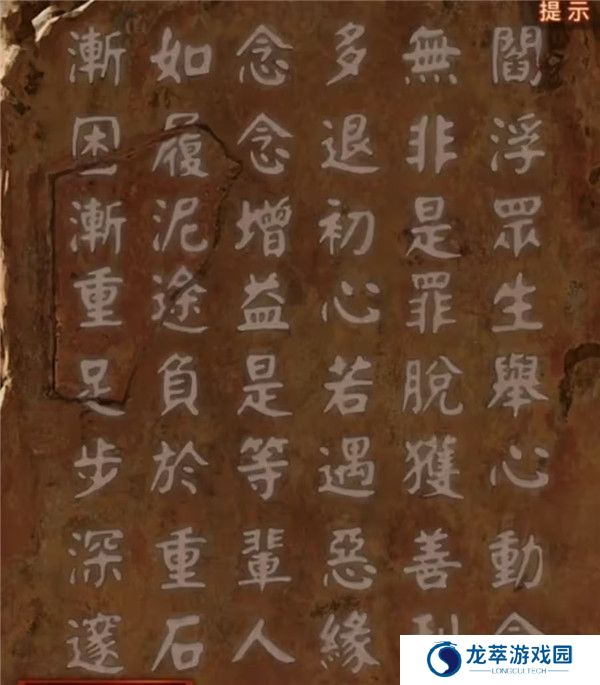 提示
閻浮眾生舉心動
無非是罪脫獲善
多退初心若遇惡緣
念念增益是等輩人
如履泥途負於重石
漸困漸重足步深邃
龙萃游戏园
LONGCUITECH